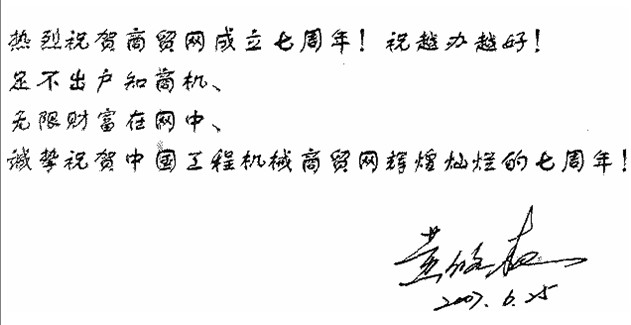 热烈祝贺商贸网成立七周年！祝越办越好！
足不出户知商机、
无限财富在网中、
诚挚祝贺中国工程机械商贸网辉煌灿烂的七周年！
2007.6.25